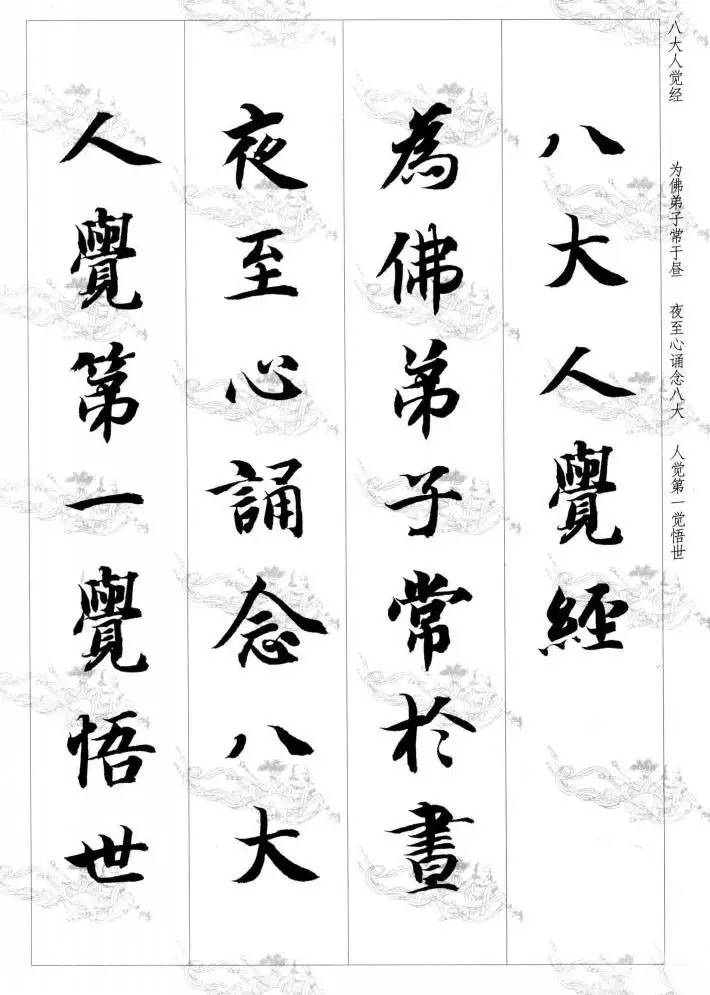 八大人觉经 为佛弟子常于昼 夜至心诵念八大 人觉第一觉悟世
八大人覺經
為佛弟子常於晝
夜至心誦念八大
人覺第一覺悟世